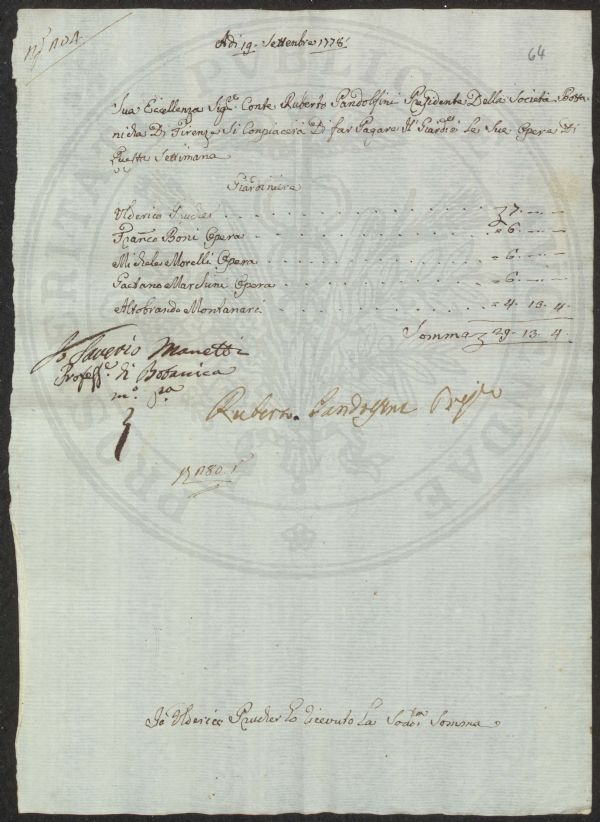 Nº 104
Adi 19. Settembre 1778
64
Sua Eccellenza Sigre Conte Ruberto Pandolfini Presidente Della Società Botta
nicha Di Firenze Si Conpiacerà Di far Pagare Il Giardri Le Sue Opera Di
Questa Settimana
Giardiniere
Ulderico Prucher 7
Franco Boni Opera 6
Michele Morelli Opera 6
Gaetano Marchini Opera 6
Altobrando Montanari 4. 13. 4
Somma 29. 13. 4
Io Saverio Manetti
Profess.e di Botanica
mº pra
Ruberto Pandolfini Presto
Io Ulderico Prucher ho ricevuto La Sodta Somma